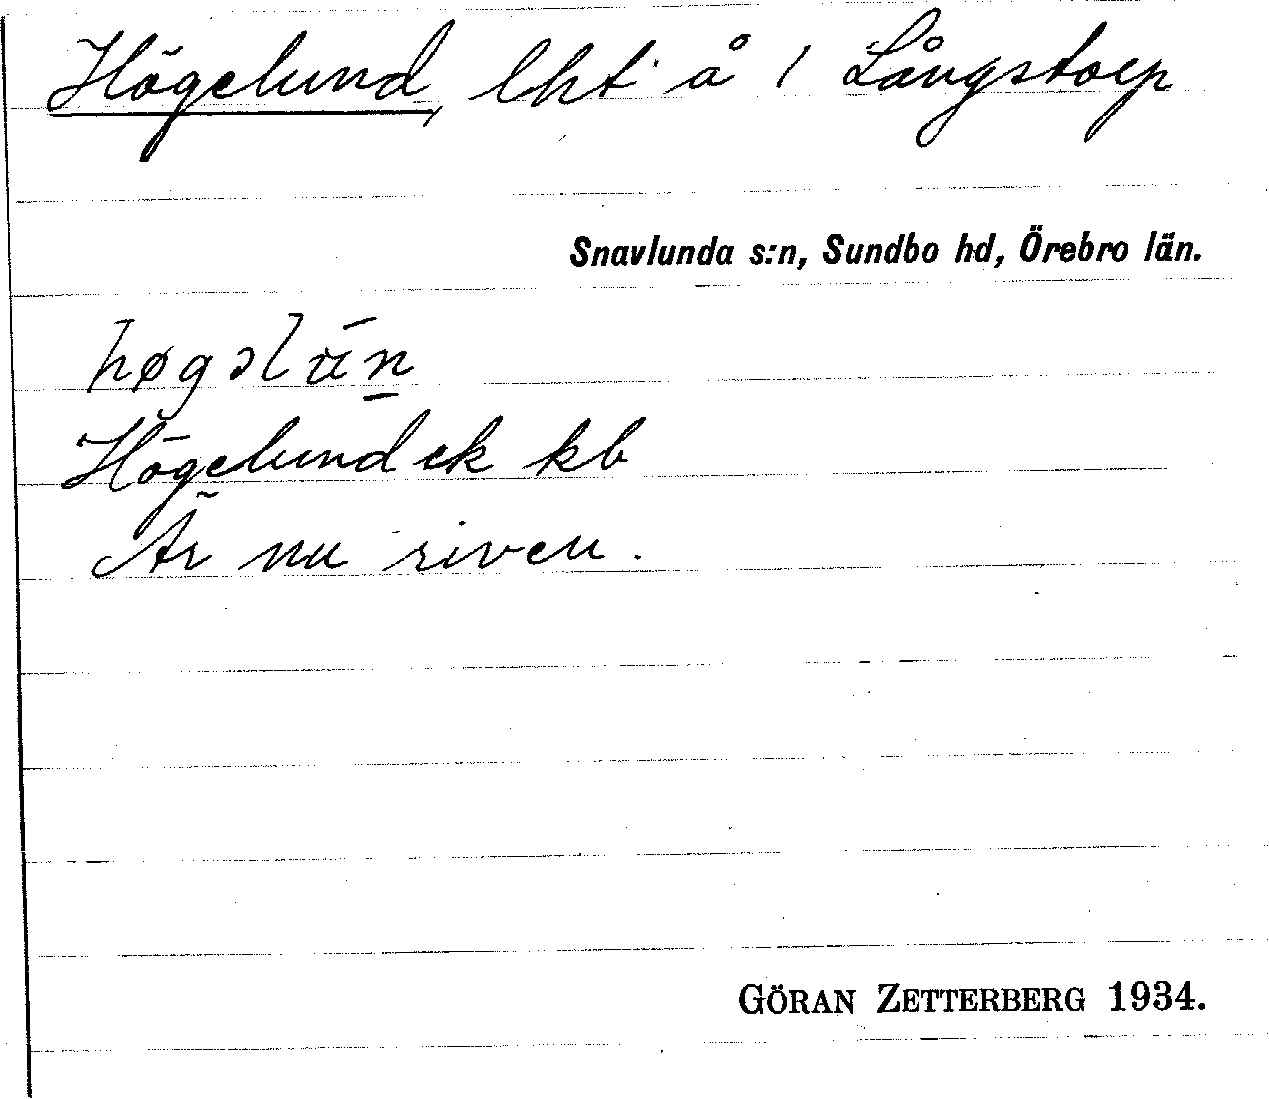 Högelund, lht å 1 Långstorp
Snavlunda s:n, Sundbo hd, Örebro län.
høgəlu̇́n̲
Högelund ek kb
Är nu riven.
GÖRAN ZETTERBERG 1934.